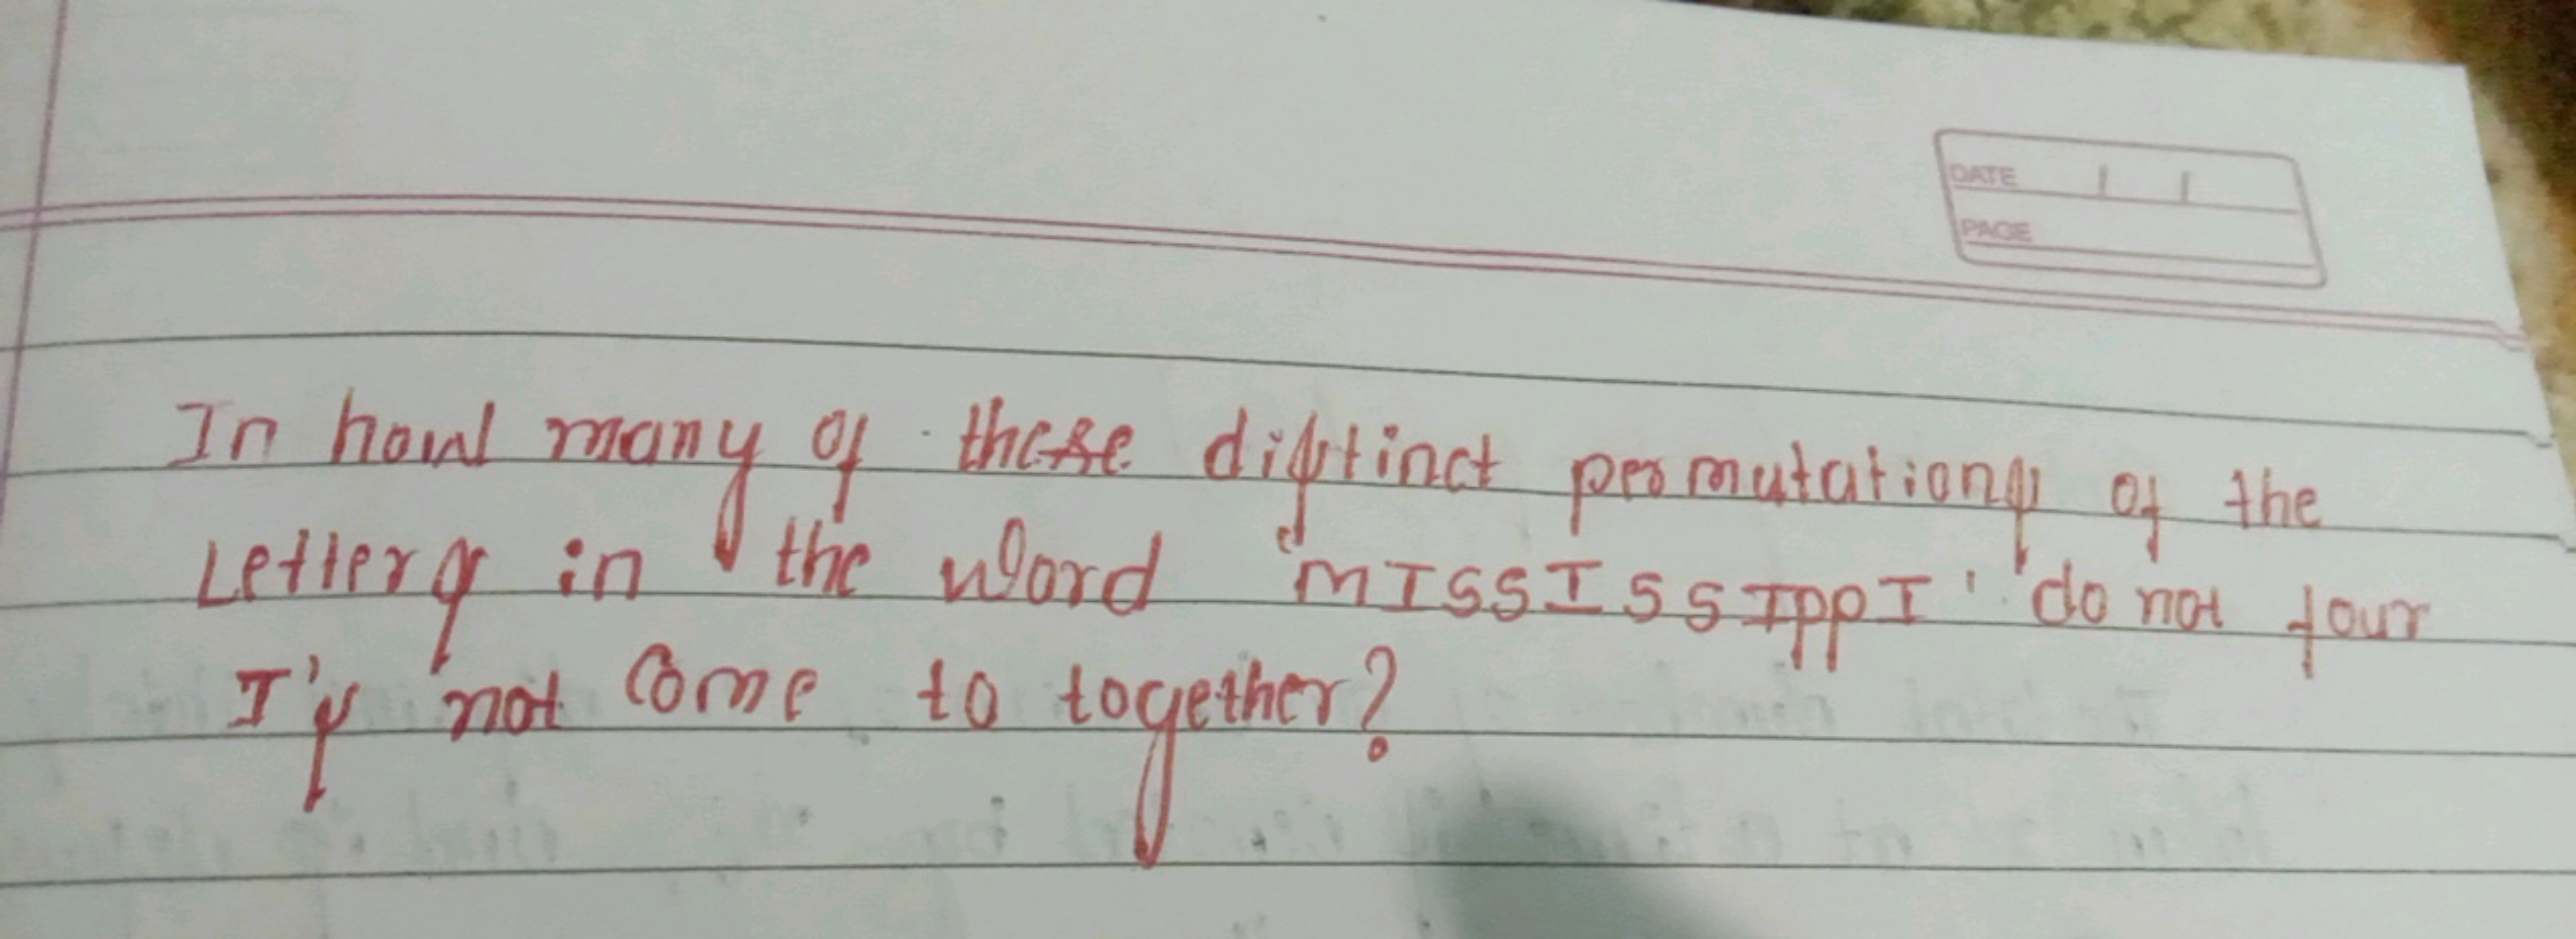 DATE
PAGE
In how many of these distinct permutations of the
Letters in the word 'MISSISSIPPI' do not four
I's not Come to together?